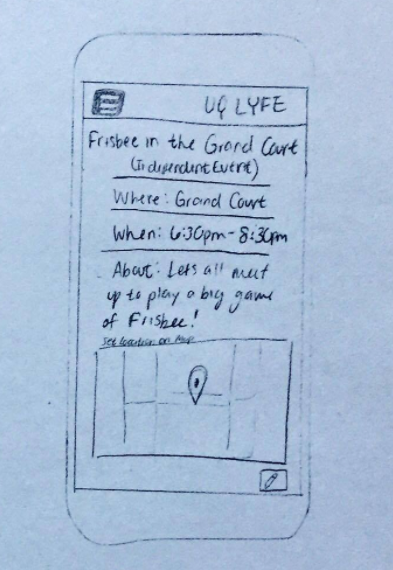 UQ LYFE
Frisbee in the Grand Court
(Independent Event)
Where: Grand Court
When: 6:30pm - 8:30pm
About: Lets all meet
up to play a big game
of Frisbee!
See location on Map